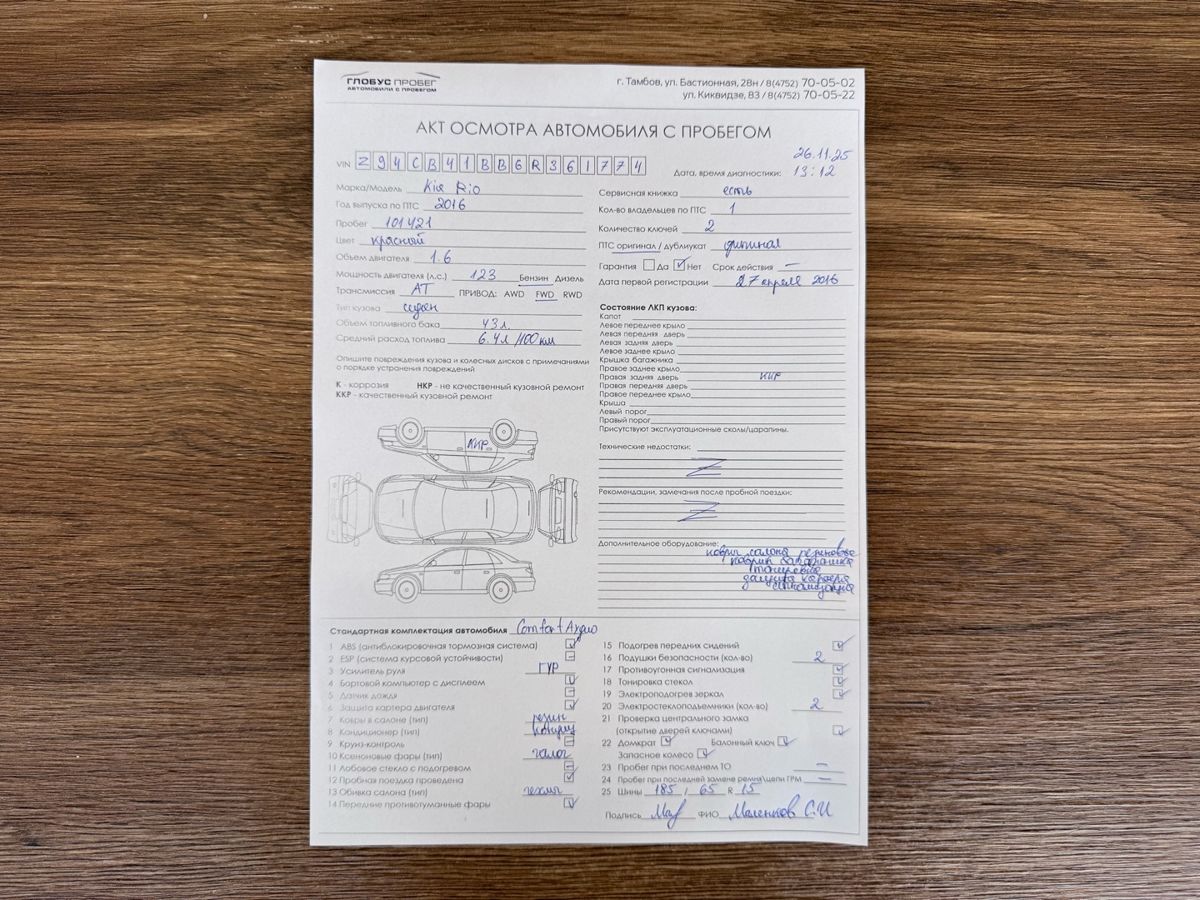 ГЛОБУС ПРОБЕГ
АВТОМОБИЛИ С ПРОБЕГОМ
г. Тамбов, ул. Бастионная, 28н / 8(4752) 70-05-02
ул. Киквидзе, 83 / 8(4752) 70-05-22
АКТ ОСМОТРА АВТОМОБИЛЯ С ПРОБЕГОМ
VIN Z94CB41BBGR361774
Дата, время диагностики: 26.11.25 13:12
Марка/Модель Kia Rio
Год выпуска по ПТС 2016
Пробег 101421
Цвет красный
Объем двигателя 1.6
Мощность двигателя (л.с.) 123 Бензин Дизель
Трансмиссия AT ПРИВОД: AWD FWD RWD
Тип кузова седан
Объем топливного бака 43 л.
Средний расход топлива 6.4 л/100 км
Опишите повреждения кузова и колесных дисков с примечаниями
о порядке устранения повреждений
К - коррозия НКР - не качественный кузовной ремонт
ККР - качественный кузовной ремонт
ККР
Сервисная книжка есть
Кол-во владельцев по ПТС 1
Количество ключей 2
ПТС оригинал / дубликат
Гарантия Да Нет Срок действия —
Дата первой регистрации 27 апреля 2016
Состояние ЛКП кузова:
Капот
Левое переднее крыло
Левая передняя дверь
Левая задняя дверь
Левое заднее крыло
Крышка багажника
Правое заднее крыло
Правая задняя дверь ККР
Правая передняя дверь
Правое переднее крыло
Крыша
Левый порог
Правый порог
Присутствуют эксплуатационные сколы/царапины.
Технические недостатки:
Рекомендации, замечания после пробной поездки:
Дополнительное оборудование:
ковры салона резиновые
коврик багажника
тонировка
защита картера
сигнализация
Стандартная комплектация автомобиля Comfort Аудио
1 ABS (антиблокировочная тормозная система)
2 ESP (система курсовой устойчивости)
3 Усилитель руля ГУР
4 Бортовой компьютер с дисплеем
5 Датчик дождя
6 Защита картера двигателя
7 Ковры в салоне (тип) резин
8 Кондиционер (тип) кондиц
9 Круиз-контроль
10 Ксеноновые фары (тип) галог
11 Лобовое стекло с подогревом
12 Пробная поездка проведена
13 Обивка салона (тип) чехлы
14 Передние противотуманные фары
15 Подогрев передних сидений
16 Подушки безопасности (кол-во) 2
17 Противоугонная сигнализация
18 Тонировка стекол
19 Электроподогрев зеркал
20 Электростеклоподъемники (кол-во) 2
21 Проверка центрального замка
(открытие дверей ключами)
22 Домкрат Балонный ключ
Запасное колесо
23 Пробег при последнем ТО —
24 Пробег при последней замене ремня\цепи ГРМ —
25 Шины 185 / 65 R 15
Подпись ФИО Маленков С.И